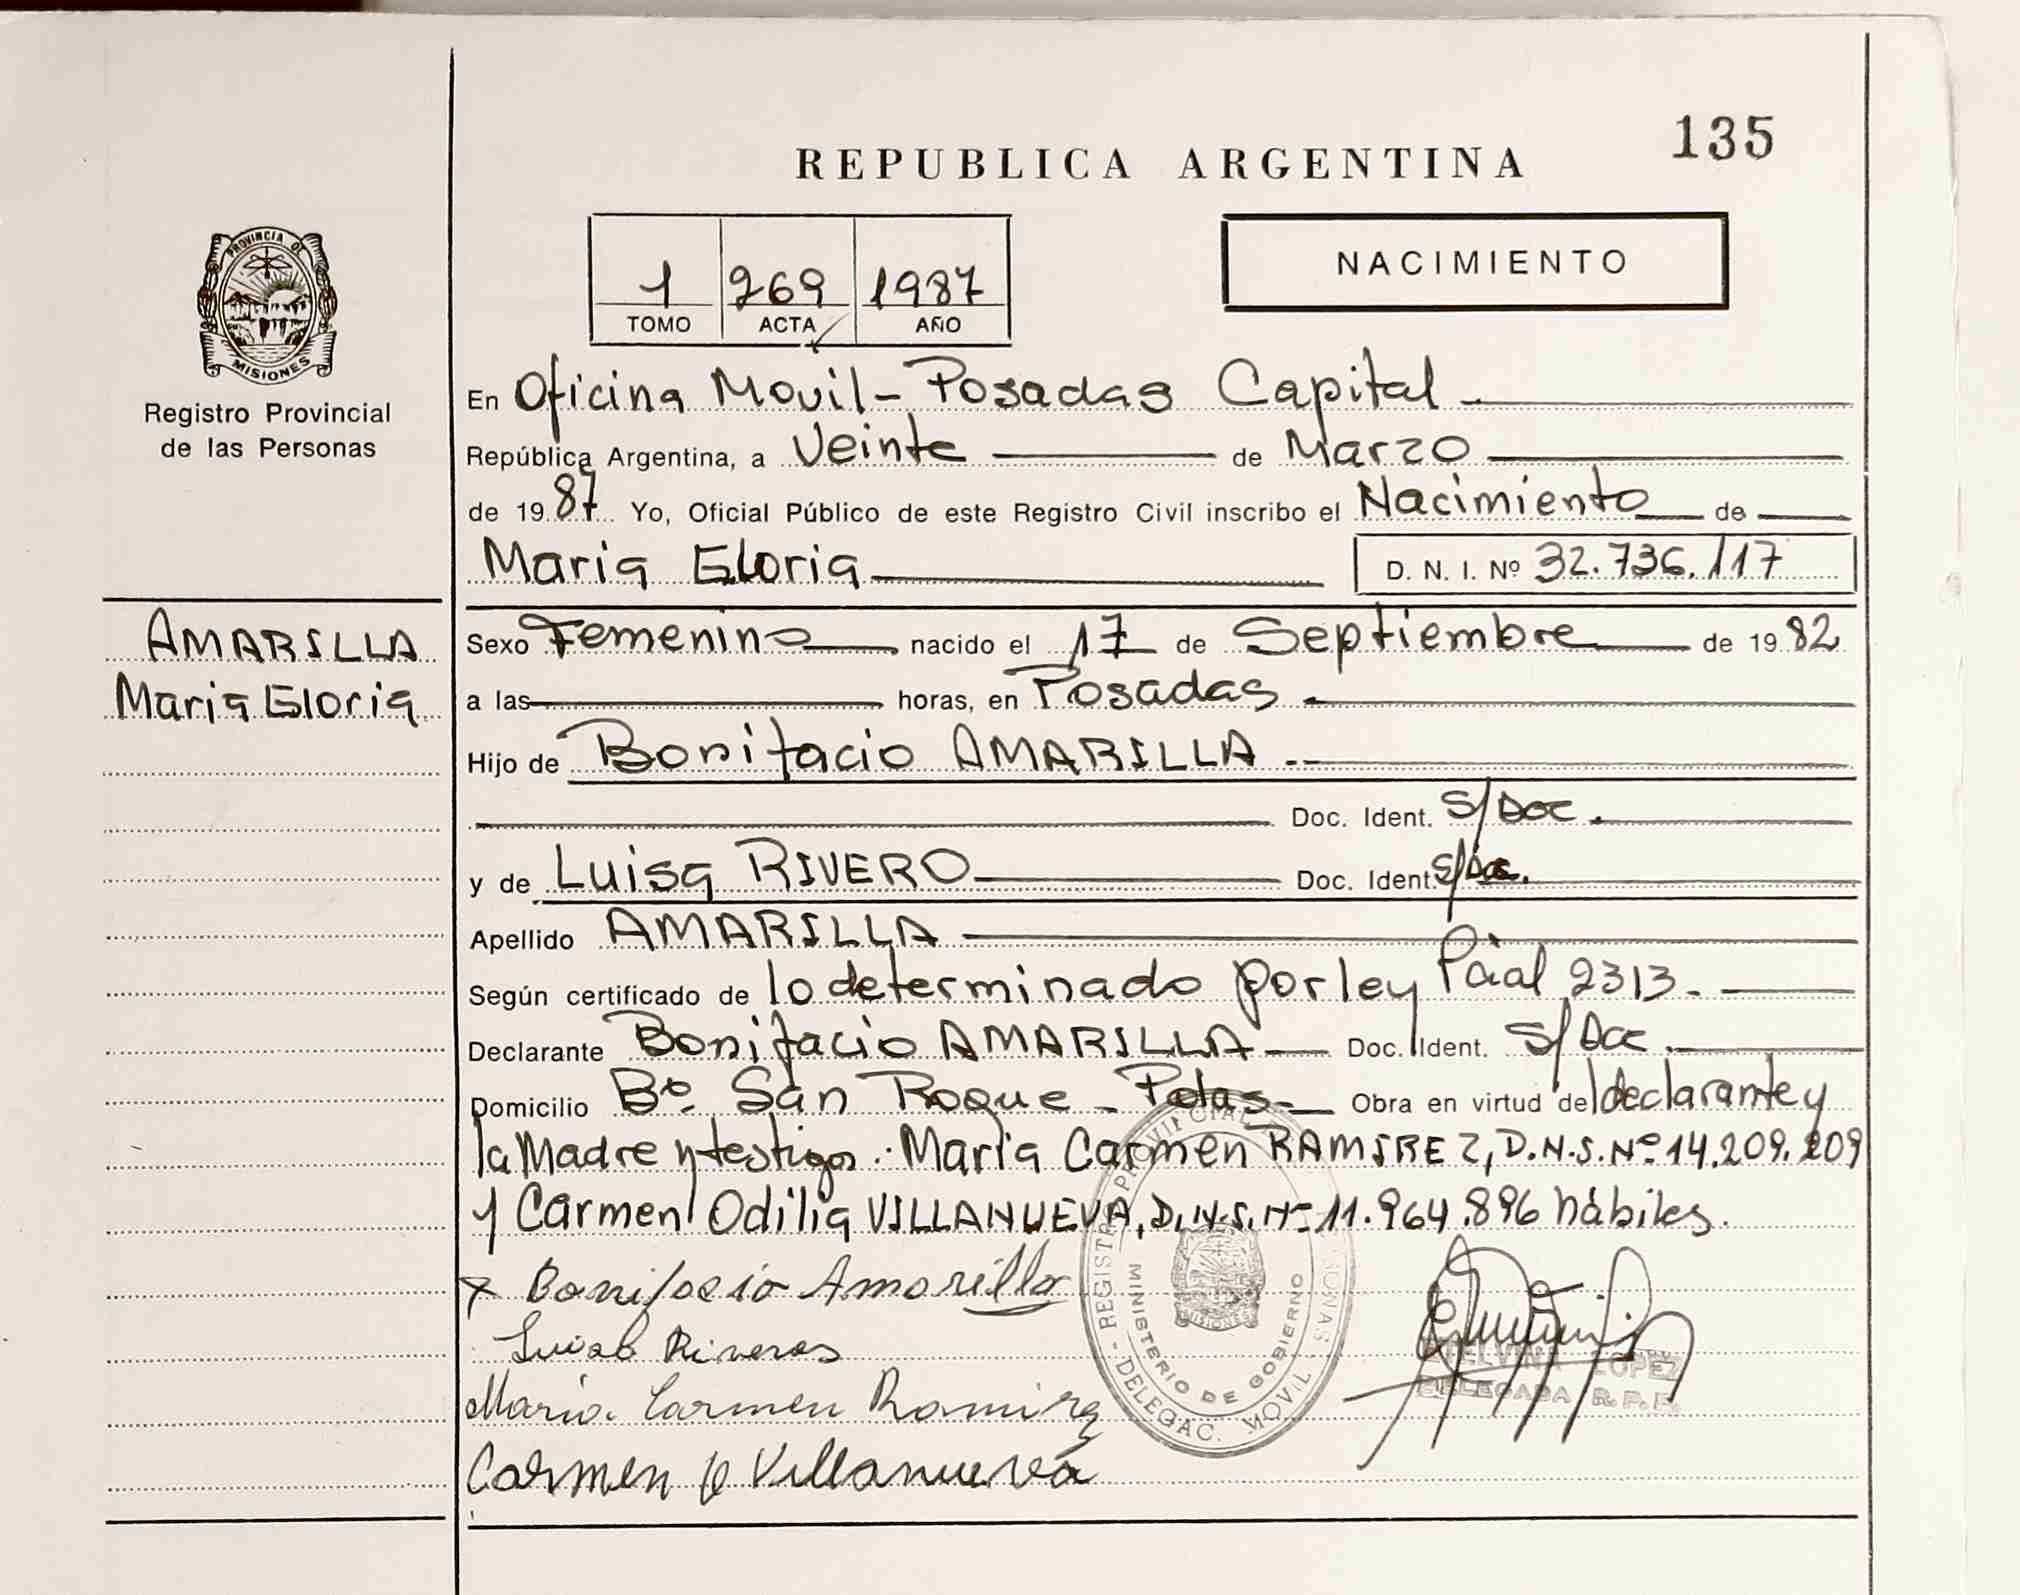 135
REPUBLICA ARGENTINA
PROVINCIA DE
MISIONES
Registro Provincial
de las Personas
1 269 1987
TOMO ACTA AÑO
NACIMIENTO
En Oficina Movil - Posadas Capital
República Argentina, a Veinte de Marzo
de 1987 Yo, Oficial Público de este Registro Civil inscribo el Nacimiento de
Maria Gloria D. N. I. Nº 32.736.117
AMARILLA
Maria Gloria
Sexo Femenino nacido el 17 de Septiembre de 1982
a las horas, en Posadas
Hijo de Bonifacio AMARILLA
Doc. Ident. S/Doc.
y de Luisa RIVERO Doc. Ident. S/Doc.
Apellido AMARILLA
Según certificado de lo determinado por ley Pcial 2313.
Declarante Bonifacio AMARILLA Doc. Ident. S/Doc.
Domicilio Bº. San Roque - Pdas - Obra en virtud del declarante y
la Madre y testigos: Maria Carmen RAMIREZ, D.N.I. Nº 14.209.209
y Carmen Odilia VILLANUEVA, D.N.I. Nº 11.964.896 hábiles.
x Bonifacio Amarilla
Luisa Riveros
Maria Carmen Ramirez
Carmen O Villanueva
REGISTRO PROVINCIAL PERSONAS - DELEGAC. MOVIL
MINISTERIO DE GOBIERNO
MISIONES
ETELVINA LOPEZ
DELEGADA R.P.P.